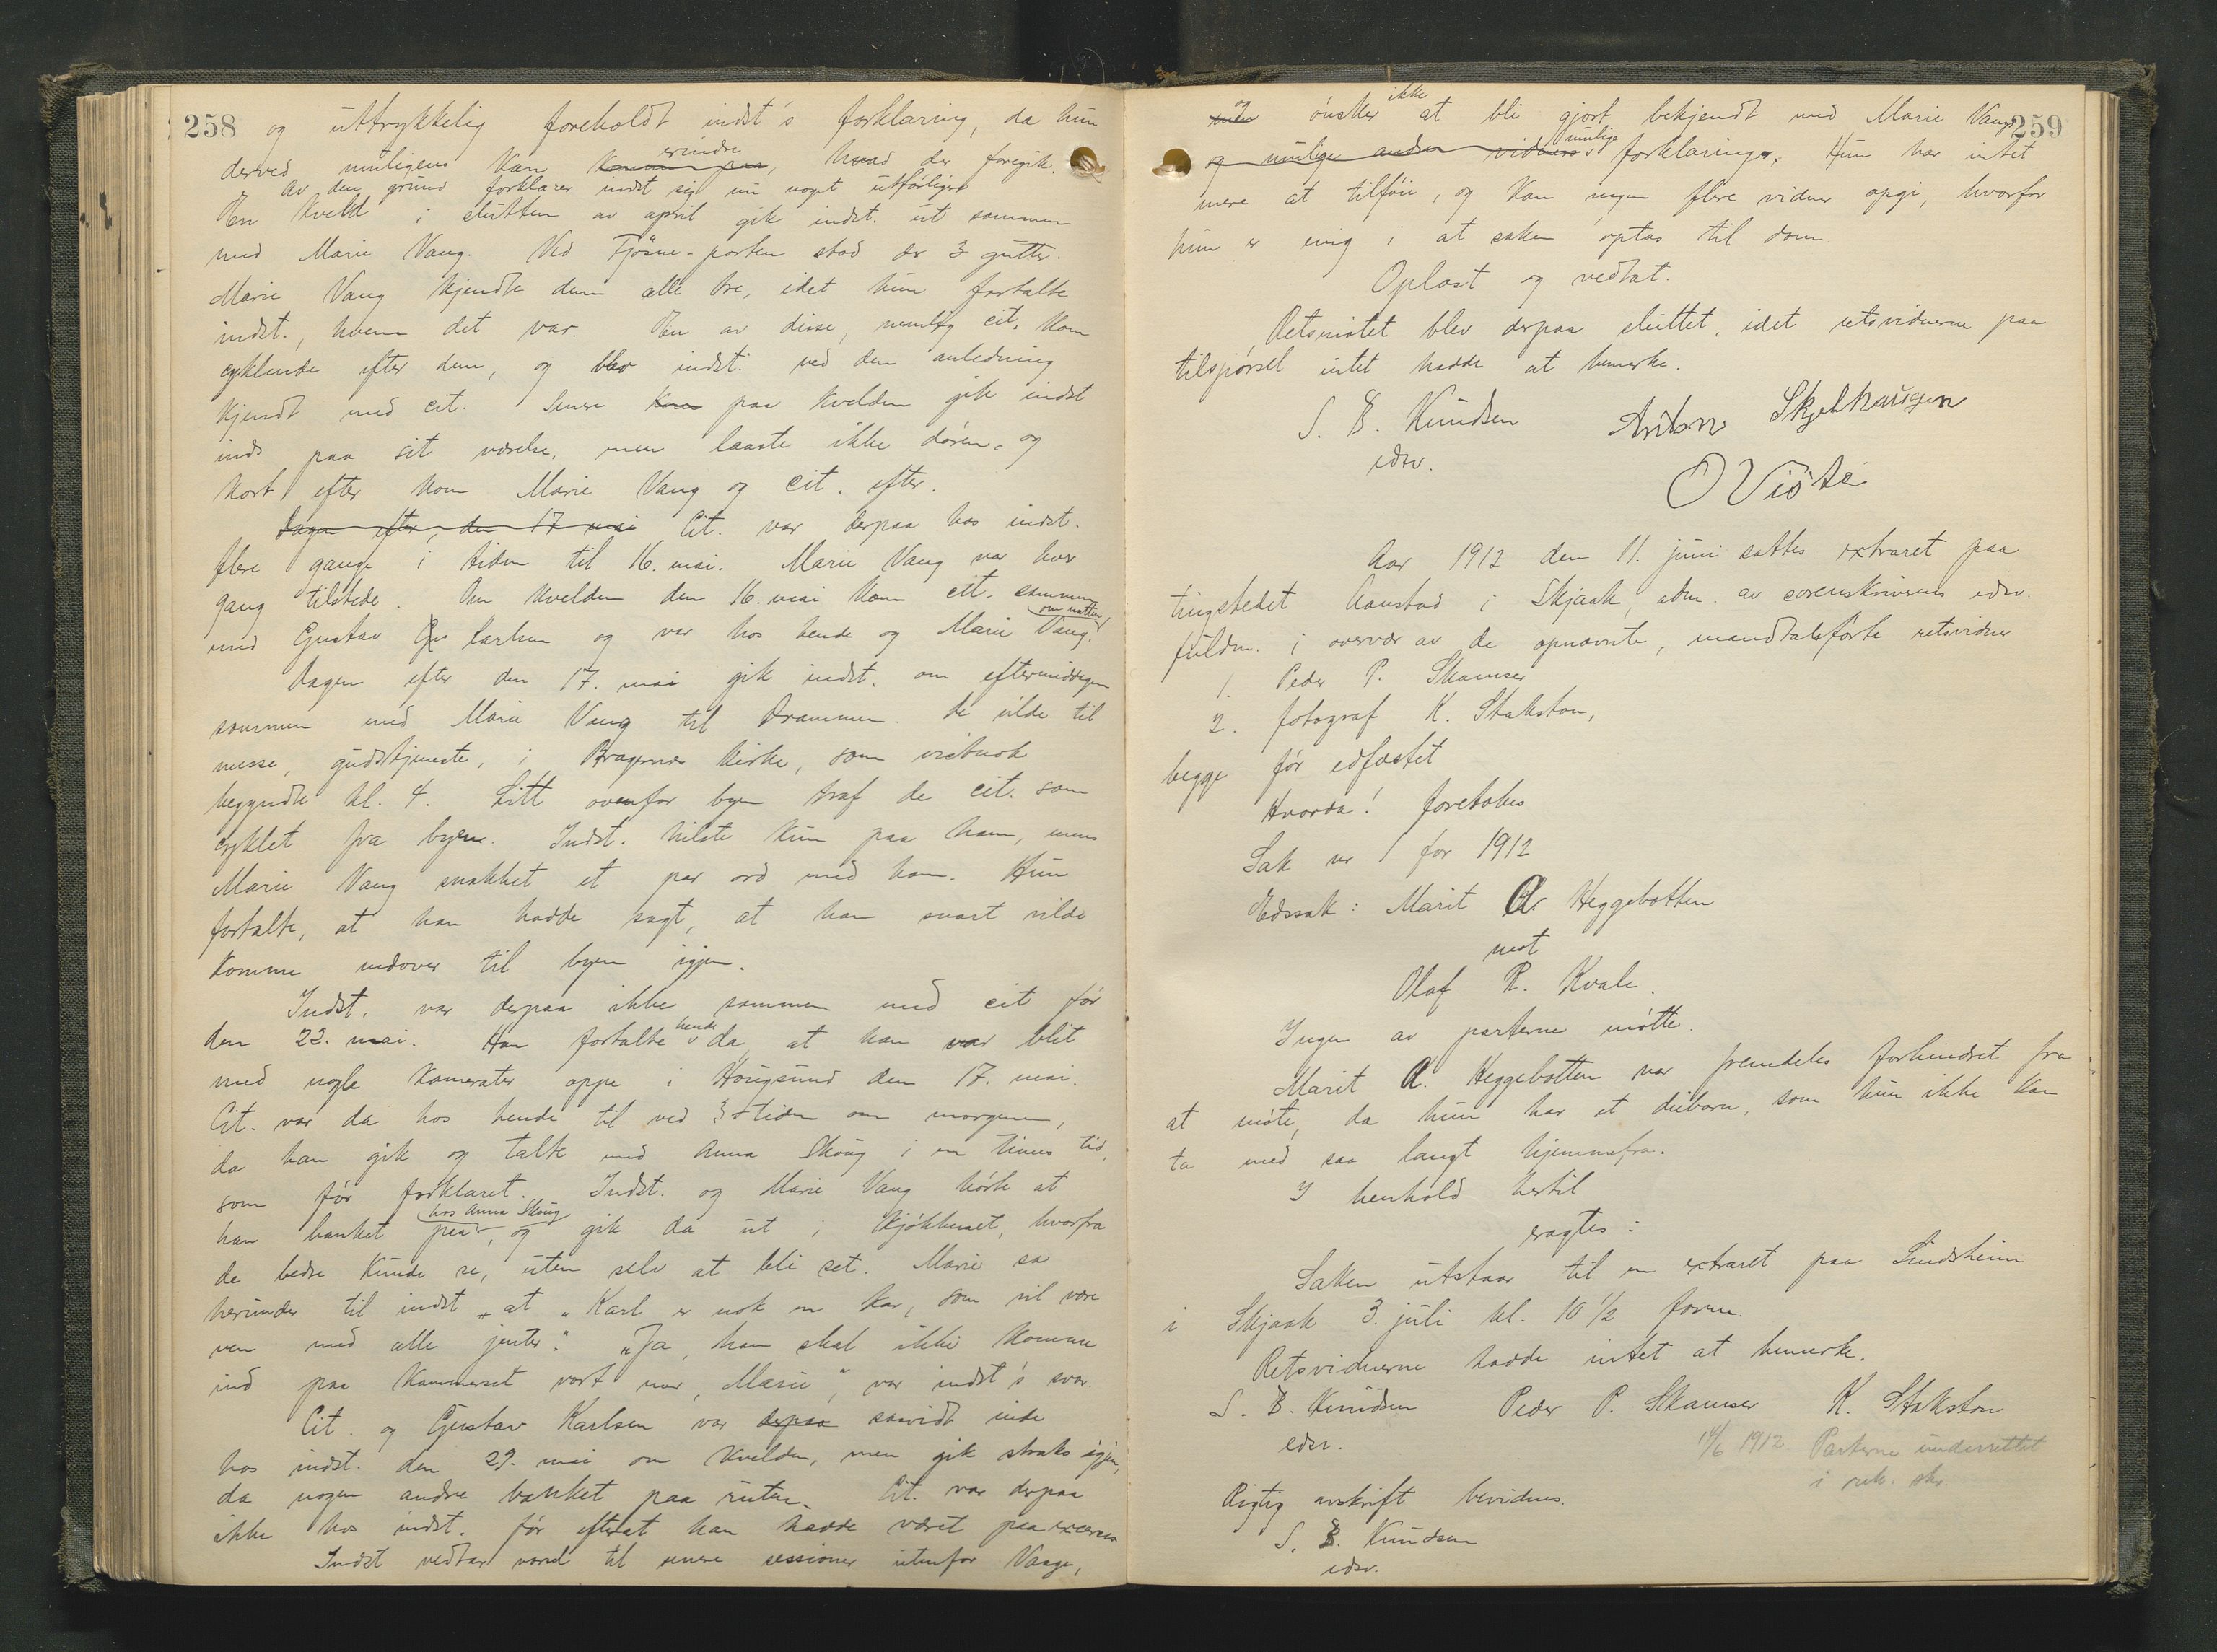 258
og uttrykkelig foreholdt indst's forklaring, da hun
derved muligens kan komme paa erindre, hvad der foregik.
Av den grund forklarer indst sig nu noget utførligere
En kveld i slutten av april gik indst. ut sammen
med Marie Vang. Ved Fjøsne-porten stod der 3 gutter.
Marie Vang kjendte dem alle tre, idet hun fortalte
indst., hvem det var. En av disse, nemlig cit. kom
cyklende efter dem, og blev indst. ved den anledning
kjendt med cit. Senere kom paa kvelden gik indst
ind paa sit værelse, men laaste ikke døren, og
kort efter kom Marie Vang og cit. efter.
Dagen efter, den 17 mai Cit. var derpaa hos indst.
flere gange i tiden til 16. mai. Marie Vang var hver
gang tilstede. Om kvelden den 16. mai kom cit. sammen
med Gustav Carlsen og var hos hende og Marie Vang om natten.
Dagen efter den 17. mai gik indst. om eftermiddagen
sammen med Marie Vang til Drammen. De vilde til
messe, gudstjeneste, i Bragernes kirke, som vistnok
begyndte kl. 4. Litt ovenfor byen traf de cit. som
cyklet fra byen. Indst. hilste kun paa ham, mens
Marie Vang snakket et par ord med ham. Hun
fortalte, at han hadde sagt, at han snart vilde
komme nedover til byen igjen.
Indst. var derpaa ikke sammen med cit før
den 22. mai. Han fortalte hende da, at han var blit
med nogle kamerater oppe i Hougsund den 17. mai.
Cit. var da hos hende til ved 3-tiden om morgenen,
da han gik og talte med Anna Skoug i en times tid,
som før forklaret. Indst. og Marie Vang hørte at
han banket paa hos Anna Skoug, og gik da ut i kjøkkenet, hvorfra
de bedre kunde se, uten selv at bli set. Marie sa
herunder til indst. at „Karl er nok en kar, som vil være
ven med alle jenter." „Ja, han skal ikke komme
ind paa kammerset vort mer, Marie", var indst's svar.
Cit. og Gustav Karlsen var derpaa saavidt inde
hos indst. den 29. mai om kvelden, men gik straks igjen,
da nogen andre banket paa ruten. Cit. var derpaa
ikke hos indst. før efterat han hadde været paa excersis
Indst vedtar varsel til senere sessioner utenfor Vaage,
259
ønsker ikke at bli gjort bekjendt med Marie Vangs
og mulige andre vidners mulige forklaringer. Hun har intet
mere at tilføie, og kan ingen flere vidner opgi, hvorfor
hun er enig i at saken optas til dom.
Oplæst og vedtat.
Retsmøtet blev derpaa sluttet, idet retsvidnerne paa
tilspørsel intet hadde at bemerke.
S. B. Knudsen Anton Skjelhaugen
edsv.
O Viste
Aar 1912 den 11. juni sattes extraret paa
tingstedet Aanstad i Skjaak, adm. av sorenskriverens edsv.
fuldm. i overvær av de opnævnte, mandtalsførte retsvidner
1. Peder P. Skamser
2. fotograf K. Stakston,
begge før edfæstet
Hvorda! foretokes
Sak nr 1 for 1912
Edssak: Marit A. Heggebotten
mot
Olaf R. Kvale.
Ingen av parterne møtte.
Marit A. Heggebotten var fremdeles forhindret fra
at møte, da hun har et diebarn, som hun ikke kan
ta med saa langt hjemmefra.
I henhold hertil
eragtes:
Saken utstaar til en extraret paa Lindsheim
i Skjaak 3. juli kl. 10 1/2 form.
Retsvidnerne hadde intet at bemerke.
S. B. Knudsen Peder P. Skamser K. Stakston
edsv.
14/6 1912 Parterne underrettet
i rek. skr.
Rigtig avskrift bevidnes.
S. B. Knudsen
edsv.